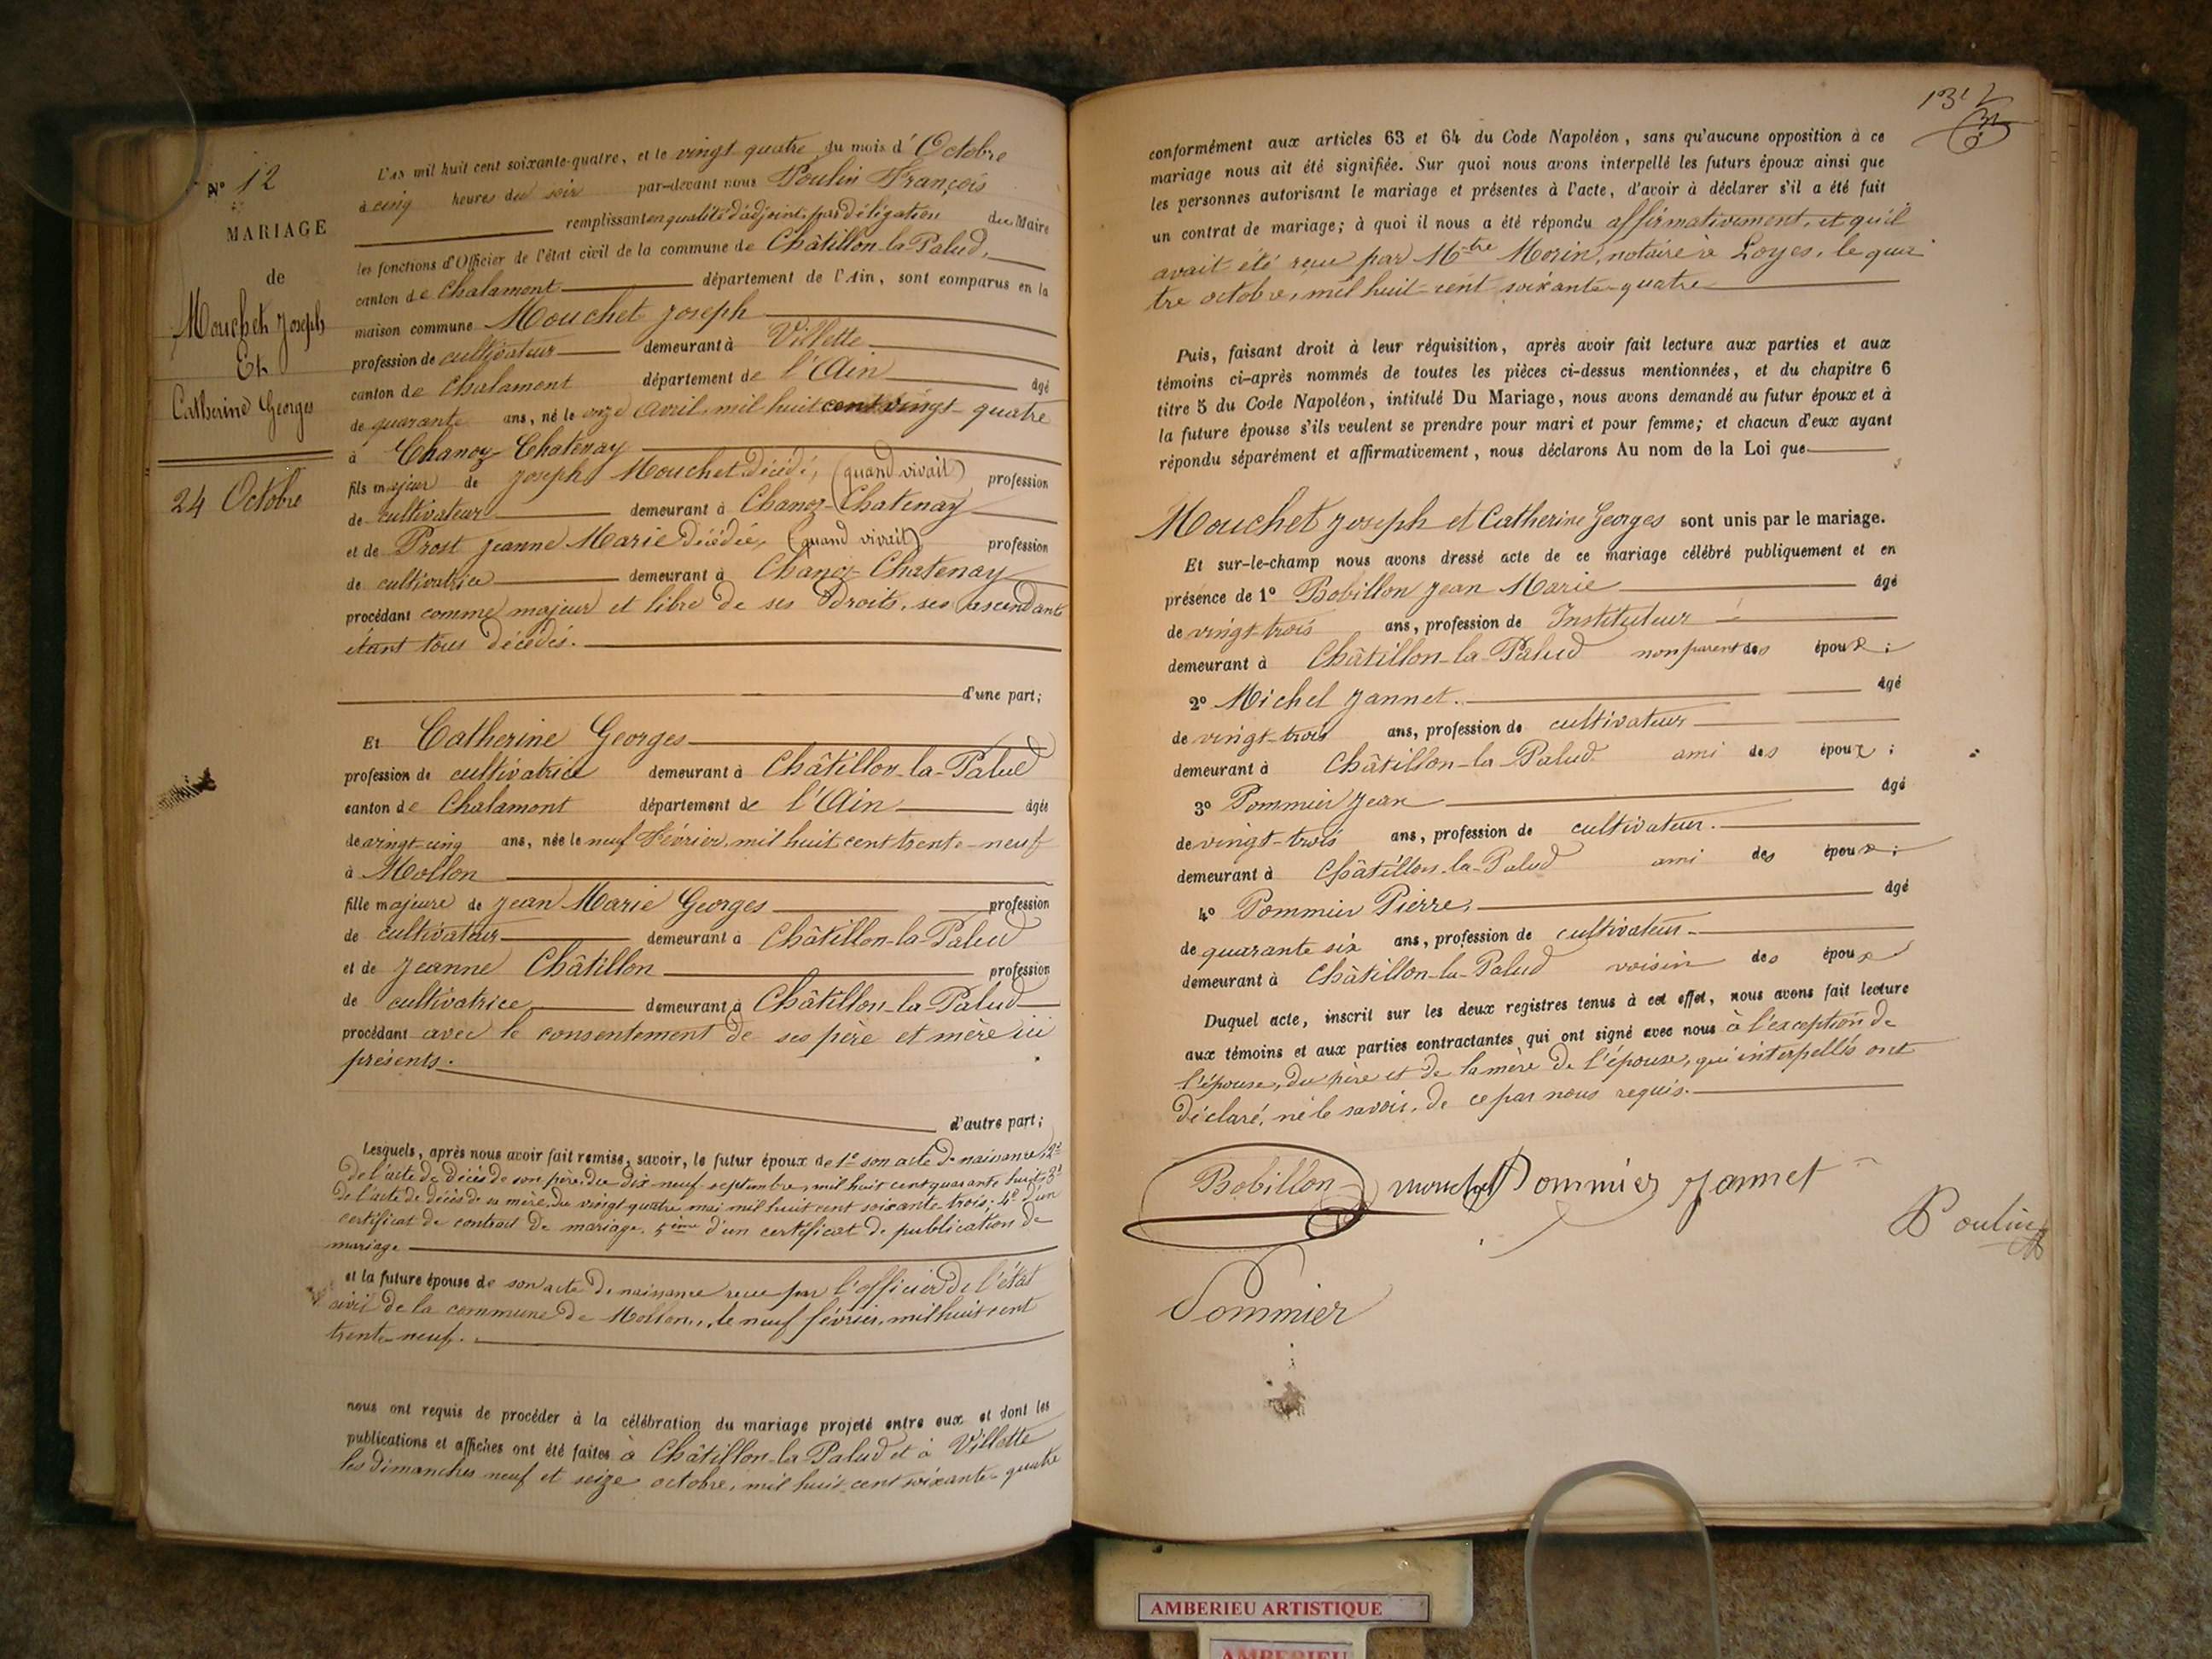 N° 12
MARIAGE
de
Mouchet Joseph
Et
Catherine Georges
24 Octobre
L'an mil huit cent soixante-quatre, et le vingt quatre du mois d'Octobre
à cinq heures du soir par-devant nous Poulin François
remplissant en qualité d'adjoint, par déligation du Maire
les fonctions d'Officier de l'état civil de la commune de Châtillon-la-Palud,
canton de Chalamont département de l'Ain, sont comparus en la
maison commune Mouchet Joseph
profession de cultivateur demeurant à Villette
canton de Chalamont département de l'Ain âgé
de quarante ans, né le onze Avril, mil huit cent vingt-quatre
à Chanoz-Chatenay
fils majeur de Joseph Mouchet décédé, (quand vivait) profession
de cultivateur demeurant à Chanoz-Chatenay
et de Prost Jeanne Marie décédée, (quand vivait) profession
de cultivatrice demeurant à Chanoz-Chatenay
procédant comme majeur et libre de ses droits, ses ascendants
étant tous décédés.
d'une part;
Et Catherine Georges
profession de cultivatrice demeurant à Châtillon-la-Palud
canton de Chalamont département de l'Ain âgée
de vingt-cinq ans, née le neuf Février, mil huit cent trente-neuf
à Mollon
fille majeure de Jean Marie Georges profession
de cultivateur demeurant à Châtillon-la-Palud
et de Jeanne Châtillon profession
de cultivatrice demeurant à Châtillon-la-Palud
procédant avec le consentement de ses père et mère ici
présents.
d'autre part;
Lesquels, après nous avoir fait remise, savoir, le futur époux de 1° son acte de naissance, 2°
de l'acte de décès de son père, du dix-neuf septembre, mil huit cent quarante huit; 3°
de l'acte de décès de sa mère, du vingt quatre mai mil huit cent soixante-trois; 4° d'un
certificat de contrat de mariage. 5ème d'un certificat de publication de
mariage
et la future épouse de son acte de naissance reçu par l'officier de l'état
civil de la commune de Mollon, le neuf février, mil huit cent
trente-neuf.
nous ont requis de procéder à la célébration du mariage projeté entre eux et dont les
publications et affiches ont été faites à Châtillon-la-Palud et à Villette
les dimanches neuf et seize octobre, mil huit cent soixante-quatre
conformément aux articles 63 et 64 du Code Napoléon, sans qu'aucune opposition à ce
mariage nous ait été signifiée. Sur quoi nous avons interpellé les futurs époux ainsi que
les personnes autorisant le mariage et présentes à l'acte, d'avoir à déclarer s'il a été fait
un contrat de mariage; à quoi il nous a été répondu affirmativement, et qu'il
avait été reçu par Mtre Morin, notaire à Loyes, le qua-
tre octobre, mil huit cent soixante-quatre
Puis, faisant droit à leur réquisition, après avoir fait lecture aux parties et aux
témoins ci-après nommés de toutes les pièces ci-dessus mentionnées, et du chapitre 6
titre 5 du Code Napoléon, intitulé Du Mariage, nous avons demandé au futur époux et à
la future épouse s'ils veulent se prendre pour mari et pour femme; et chacun d'eux ayant
répondu séparément et affirmativement, nous déclarons Au nom de la Loi que
Mouchet Joseph et Catherine Georges sont unis par le mariage.
Et sur-le-champ nous avons dressé acte de ce mariage célébré publiquement et en
présence de 1° Bobillon Jean Marie âgé
de vingt-trois ans, profession de Instituteur
demeurant à Châtillon-la-Palud non parent des époux;
2° Michel Jannet. âgé
de vingt-trois ans, profession de cultivateur
demeurant à Châtillon-la-Palud ami des époux;
3° Pommier Jean âgé
de vingt-trois ans, profession de cultivateur.
demeurant à Châtillon-la-Palud ami des époux;
4° Pommier Pierre, âgé
de quarante six ans, profession de cultivateur
demeurant à Châtillon-la-Palud voisin des époux
Duquel acte, inscrit sur les deux registres tenus à cet effet, nous avons fait lecture
aux témoins et aux parties contractantes qui ont signé avec nous à l'exception de
l'épouse, du père et de la mère de l'épouse, qui interpellés ont
déclaré, ne le savoir, de ce par nous requis.
Bobillon mouchet Pommier Jannet
Poulin
Pommier
AMBERIEU ARTISTIQUE
AMBERIEU